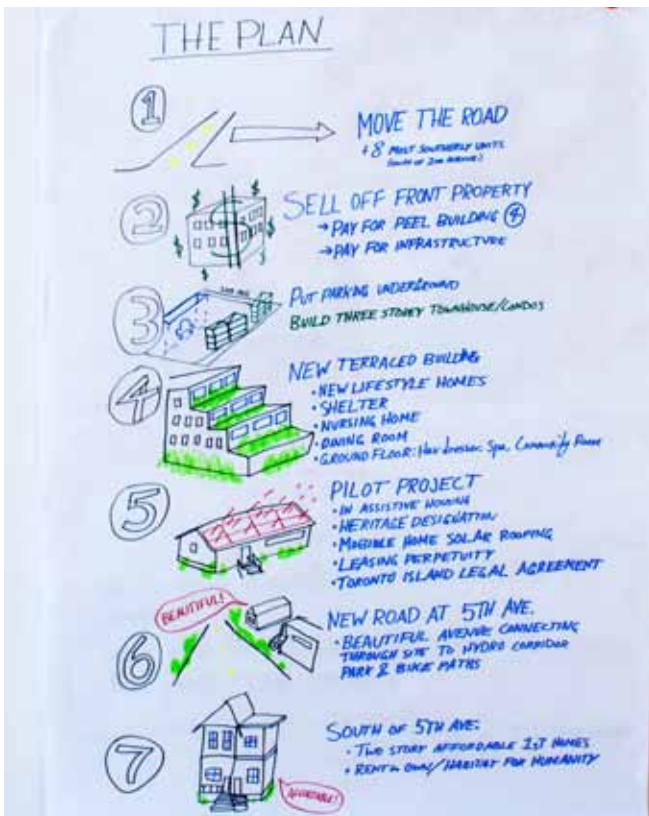 THE PLAN
1
MOVE THE ROAD
+8 MOST SOUTHERLY UNITS
2
SELL OFF FRONT PROPERTY
→PAY FOR PEEL BUILDING 4
→PAY FOR INFRASTRUCTURE
3
PUT PARKING UNDERGROUND
BUILD THREE STOREY TOWNHOUSE/CONDOS
4
NEW TERRACED BUILDING
•NEW LIFESTYLE HOMES
•SHELTER
•NURSING HOME
•DINING ROOM
•GROUND FLOOR: Hairdresser, Spa, Community Room
5
PILOT PROJECT
•IN ASSISTIVE HOUSING
•HERITAGE DESIGNATION
•MOBILE HOME SOLAR ROOFING
•LEASING PERPETUITY
•TORONTO ISLAND LEGAL AGREEMENT
BEAUTIFUL!
6
NEW ROAD AT 5TH AVE.
•BEAUTIFUL AVENUE CONNECTING
THROUGH SITE TO HYDRO CORRIDOR
PARK & BIKE PATHS
7
SOUTH OF 5TH AVE.
•TWO STORY AFFORDABLE 1ST HOMES
•RENT TO OWN/HABITAT FOR HUMANITY
AFFORDABLE!